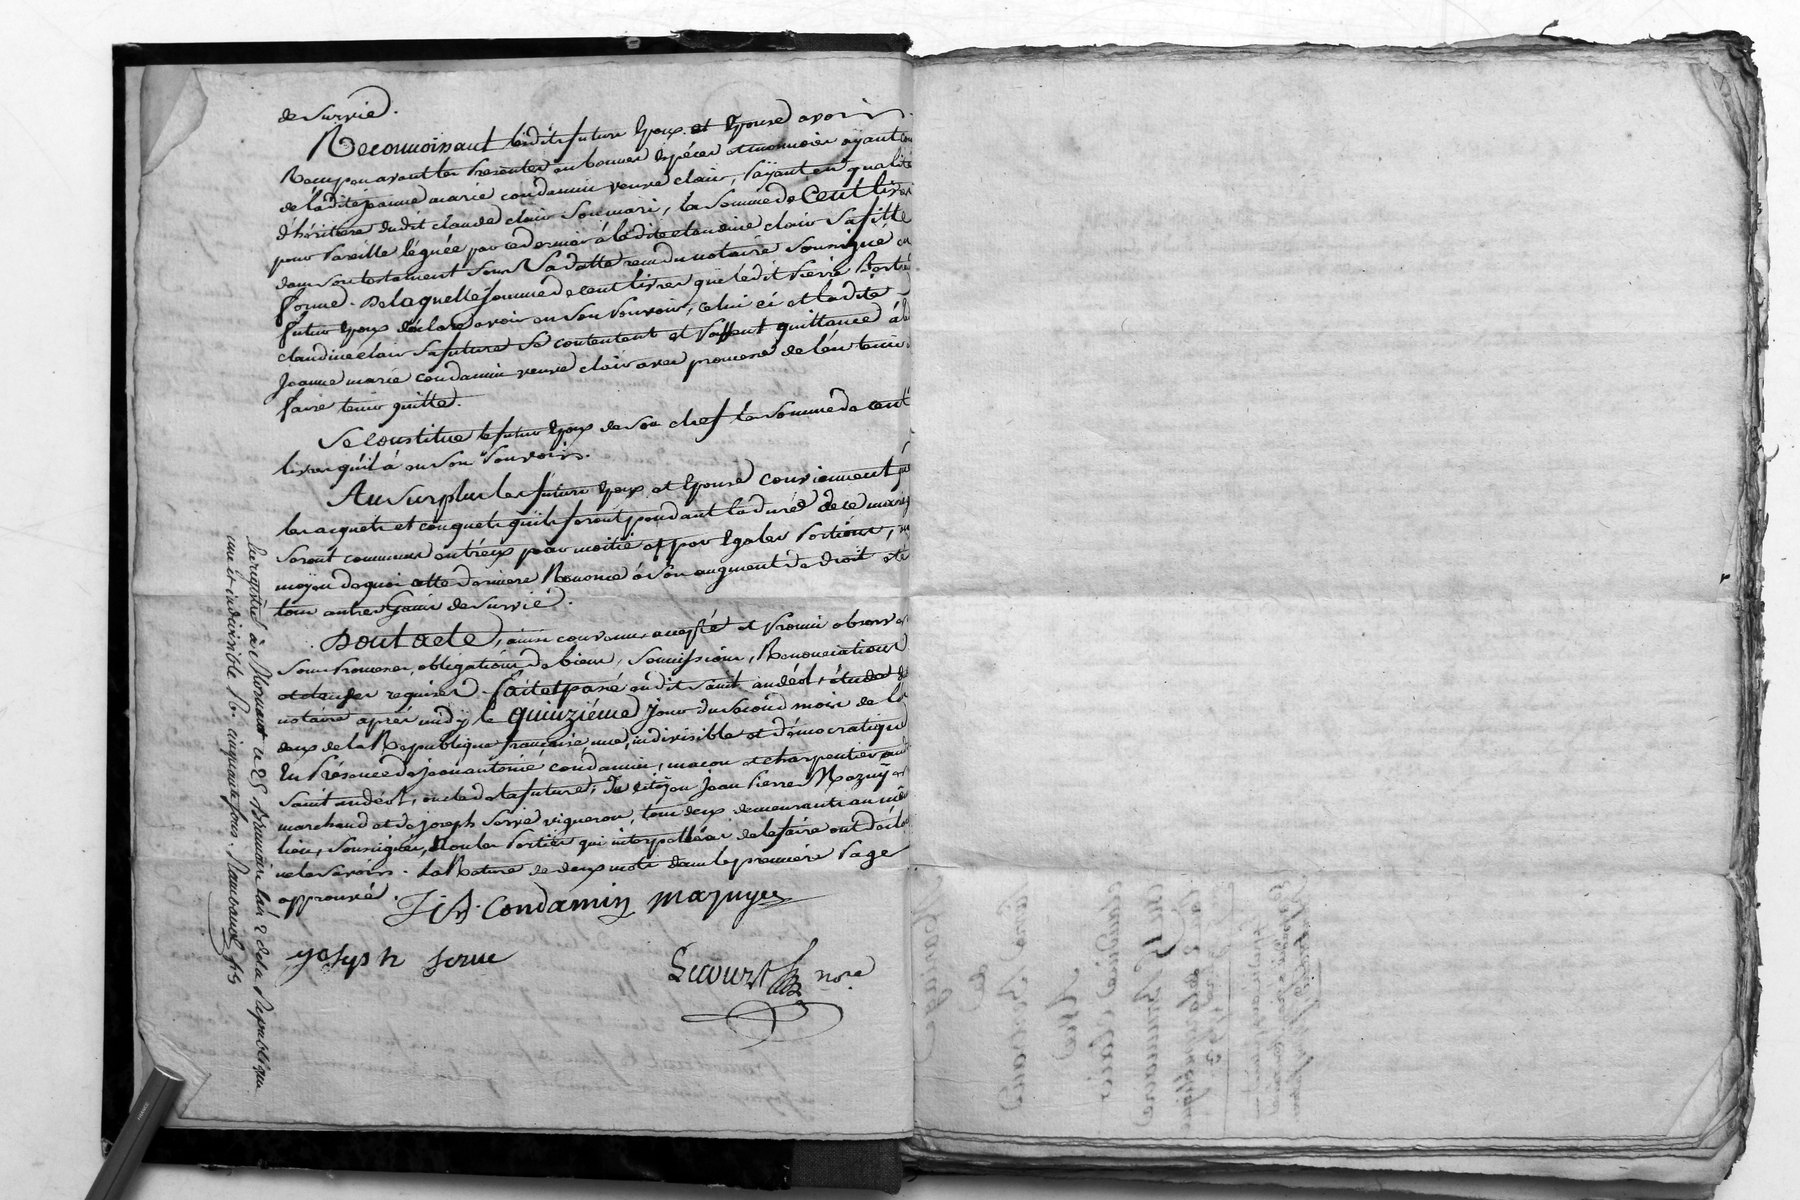 de Survie.
Reconnoissant lesdits future Epoux et Epouse avoir
Reçu pour avant les Presentes en bonnes Espéces et monnoies ayant cou
de ladite jeanne marie condamin veuve clair, Païant en qualité
d'héritiere dudit claude clair Son mari, la Somme de Cent livres
pour Pareille léguée par ce dernier á ladite claudine clair Sa fille
dans Son testament Sous Sa datte reçu du notaire Soussigné en
forme. De laquelle Somme de cent livres que ledit Pierre
futur Epoux déclare avoir en Son Pouvoir, celui ci et ladite
claudine clair Sa future Se contentent et Passent quittance á la
Jeanne marie condamin veuve clair avec promesse de l'en tenir
faire tenir quitte.
Se Constitue le futur Epoux de Son chef la Somme de cent
livres qu'il á en Son Pouvoir.
Au Surplus les future Epoux et Epouse conviennent que
les acquets et conquets qu'ils feront pendant la durée de ce mariag
Seront communs entréux pour moitié et par Egales Portions,
moyen de quoi cette derniere Renonce á Son augment de droit et á
tous autres Gains de Survie.
Dont acte, ainsi convenu accepté et Promis observer
Sous Promesses, obligations de biens, Soumissions, Renonciations
et clauses requises. Fait et passé audit Saint andéol, étude du
notaire aprés midy le quinziéme Jour du Sécond mois de l'an
deux de la Republique francaise une, indivisible et démocratique
En Présence de jean antoine condamin, macon et charpentier audit
Saint andéol, oncle de la future, Du citoyen Jean Pierre Mazuyer
marchand et de Joseph Serve vigneron, tous deux demeurants au même
lieu, Soussignés, Non les Parties qui interpellées de le faire ont déclaré
ne le Savoir. La Rature de deux mots dans la premiére Page
approuvé.
J: A. Condamin mazuyer
yosyph serve
Lecourt nore
Enregistré à Mornant ce 25 brumaire l'an 2 de la République
une et indivisible. R. cinquante sous. Raimbaud